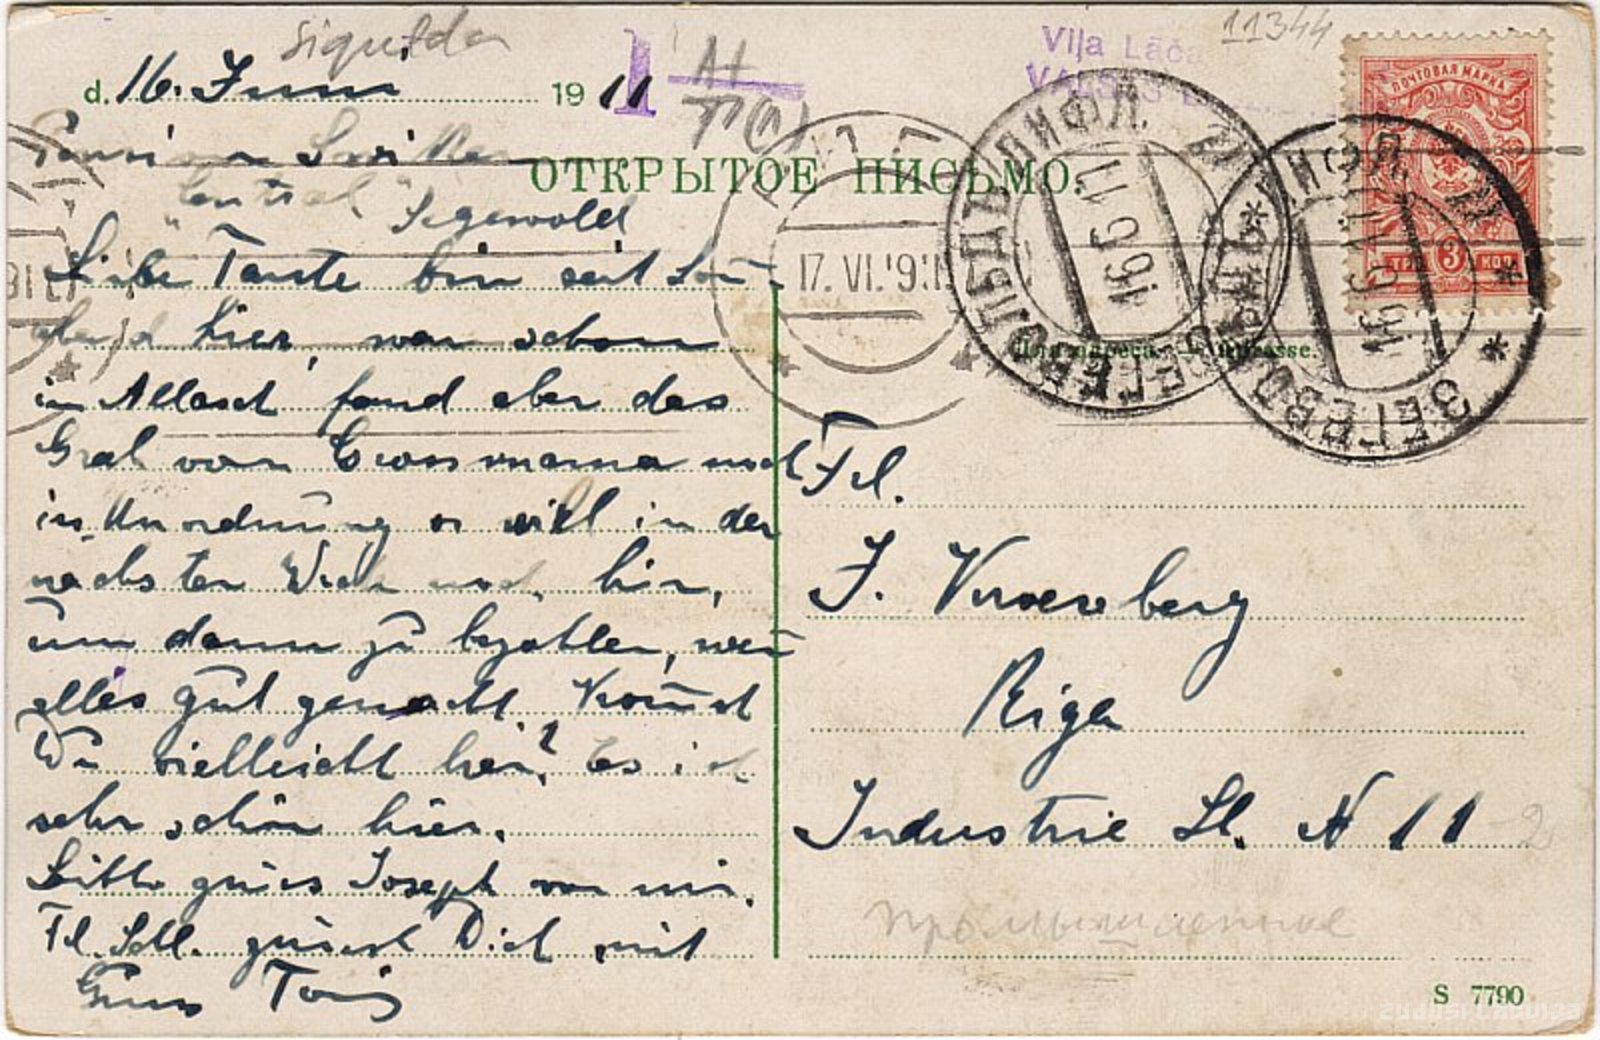 Sigulda
11344
d. 16. Juni 1911
1
Viļa Lāča
VALSTS
ПОЧТОВАЯ МАРКА
ТРИ 3 КОП
ОТКРЫТОЕ ПИСЬМО.
ЗЕГЕВОЛЬДЪ ЛИФЛ.
16 6 11
ЗЕГЕВОЛЬДЪ ЛИФЛ.
16 6 11
17. VI. 911
Pension
Central" Segewold
Liebe Tante bin seit Son-
abend hier, war schon
in Allasch fand aber das
Grab von Grossmama noch
in Unordnung will in der
nächsten Woche noch hin,
um dann zu bezahlen, wen
alles gut gemacht. Komst
Du vielleicht her? Es ist
sehr schön hier.
Bitte grüss Joseph von mir.
Fl. Sch. grüsst Dich mit
Gruss
Adresse.
Fl.
J.
Riga
Industrie St. N 11
-2
промышленная
S 7790
zudusi Latvija